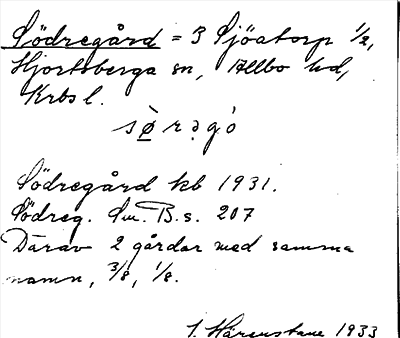 Södregård = 3 Sjöatorp 1/2,
Hjortsberga sn, Allbo hd,
Krbs l.
sø̀rəgó
Södregård kb 1931.
Södreg. Sm. B. s. 207
Därav 2 gårdar med samma
namn, 3/8, 1/8.
J. 1933